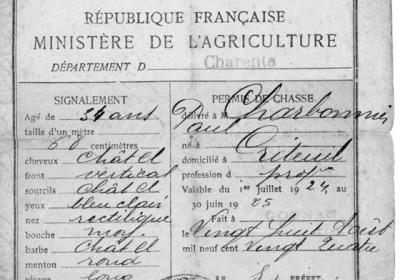 RÉPUBLIQUE FRANÇAISE
MINISTÈRE DE L'AGRICULTURE
DÉPARTEMENT D Charente
SIGNALEMENT
Agé de 34 ans
taille d'un mètre
68 centimètres
cheveux Châtel
front vertical
sourcils Châtel
yeux bleu clair
nez rectiligne
bouche moy.
barbe Châtel
menton rond
PERMIS DE CHASSE
délivré à M. Charbonnier
Paul
né à
domicilié à Criteuil
profession d prof
Valable du 1er juillet 1924 au
30 juin 1925
Fait à
le Vingt huit Août
mil neuf cent Vingt Quatre
LE PRÉFET